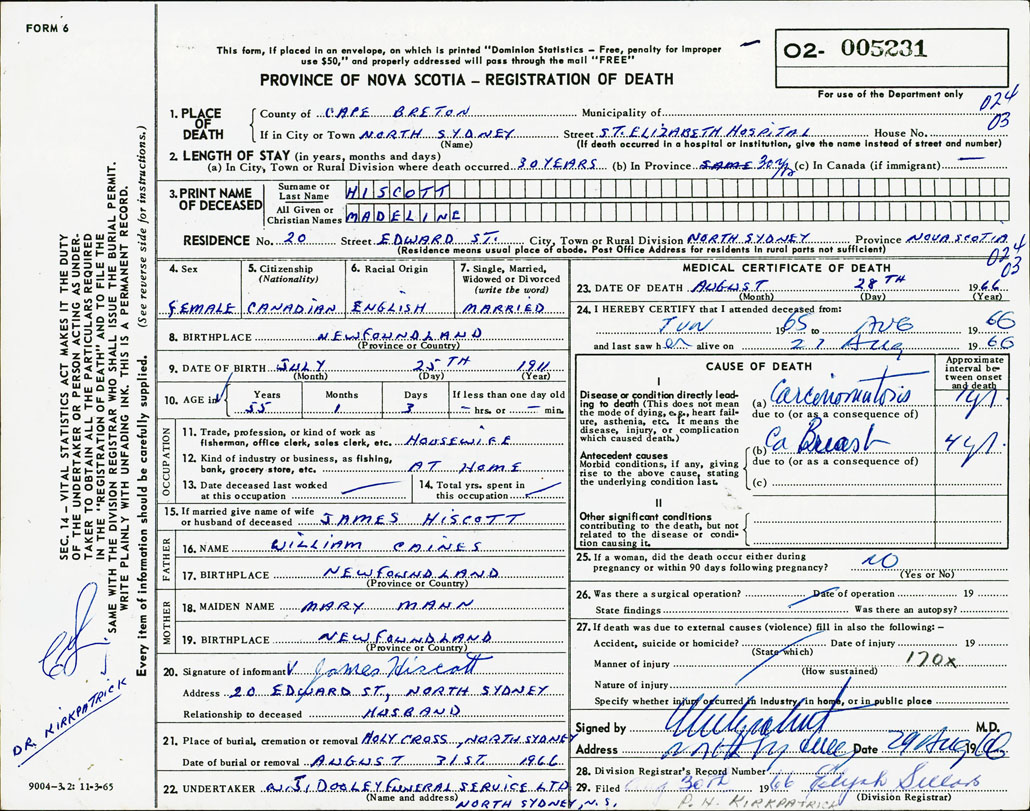 FORM 6
This form, if placed in an envelope, on which is printed "Dominion Statistics – Free, penalty for improper
use $50," and properly addressed will pass through the mail "FREE"
PROVINCE OF NOVA SCOTIA – REGISTRATION OF DEATH
02- 005231
For use of the Department only
024
03
1. PLACE OF DEATH
County of CAPE BRETON Municipality of
If in City or Town NORTH SYDNEY Street ST. ELIZABETH HOSPITAL House No.
(Name) (If death occurred in a hospital or institution, give the name instead of street and number)
2. LENGTH OF STAY (in years, months and days)
(a) In City, Town or Rural Division where death occurred 30 YEARS (b) In Province SAME 30 yrs (c) In Canada (if immigrant) —
3. PRINT NAME OF DECEASED
Surname or Last Name HISCOTT
All Given or Christian Names MADELINE
RESIDENCE No. 20 Street EDWARD ST. City, Town or Rural Division NORTH SYDNEY Province NOVA SCOTIA
(Residence means usual place of abode. Post Office Address for residents in rural parts not sufficient)
024
03
4. Sex
FEMALE
5. Citizenship
(Nationality)
CANADIAN
6. Racial Origin
ENGLISH
7. Single, Married,
Widowed or Divorced
(write the word)
MARRIED
8. BIRTHPLACE NEWFOUNDLAND
(Province or Country)
9. DATE OF BIRTH JULY 25TH 1911
(Month) (Day) (Year)
10. AGE in
Years Months Days If less than one day old
55 1 3 – hrs. or – min.
OCCUPATION
11. Trade, profession, or kind of work as
fisherman, office clerk, sales clerk, etc. HOUSEWIFE
12. Kind of industry or business, as fishing,
bank, grocery store, etc. AT HOME
13. Date deceased last worked
at this occupation
14. Total yrs. spent in
this occupation
15. If married give name of wife
or husband of deceased JAMES HISCOTT
FATHER
16. NAME WILLIAM CAINES
17. BIRTHPLACE NEWFOUNDLAND
(Province or Country)
MOTHER
18. MAIDEN NAME MARY MANN
19. BIRTHPLACE NEWFOUNDLAND
(Province or Country)
20. Signature of informant James Hiscott
Address 20 EDWARD ST, NORTH SYDNEY
Relationship to deceased HUSBAND
21. Place of burial, cremation or removal HOLY CROSS, NORTH SYDNEY
Date of burial or removal AUGUST 31ST. 1966
22. UNDERTAKER W.J. DOOLEY FUNERAL SERVICE LTD
(Name and address) NORTH SYDNEY, N.S.
MEDICAL CERTIFICATE OF DEATH
23. DATE OF DEATH AUGUST 28TH 1966
(Month) (Day) (Year)
24. I HEREBY CERTIFY that I attended deceased from:
Jun 1965 to Aug 1966
and last saw her alive on 27 Aug 1966
CAUSE OF DEATH
Approximate
interval between onset
and death
I
Disease or condition directly leading to death (This does not mean
the mode of dying, e.g., heart failure, asthenia, etc. It means the
disease, injury, or complication
which caused death.)
(a) Carcinomatosis 1 yr
due to (or as a consequence of)
Antecedent causes
Morbid conditions, if any, giving
rise to the above cause, stating
the underlying condition last.
(b) Ca Breast 4 yr.
due to (or as a consequence of)
(c)
II
Other significant conditions
contributing to the death, but not
related to the disease or condition causing it.
25. If a woman, did the death occur either during
pregnancy or within 90 days following pregnancy? NO
(Yes or No)
26. Was there a surgical operation? Date of operation 19
State findings Was there an autopsy?
27. If death was due to external causes (violence) fill in also the following:–
Accident, suicide or homicide? Date of injury 19
(State which)
Manner of injury 170x
(How sustained)
Nature of injury
Specify whether injury occurred in industry, in home, or in public place
Signed by M.D.
Address Date 29 Aug 1966
28. Division Registrar's Record Number
29. Filed 30th 1966
(Division Registrar)
P. H. KIRKPATRICK
SEC. 14 – VITAL STATISTICS ACT MAKES IT THE DUTY
OF THE UNDERTAKER OR PERSON ACTING AS UNDERTAKER TO OBTAIN ALL THE PARTICULARS REQUIRED
IN THE "REGISTRATION OF DEATH" AND TO FILE THE
SAME WITH THE DIVISION REGISTRAR WHO SHALL ISSUE THE BURIAL PERMIT.
WRITE PLAINLY WITH UNFADING INK. THIS IS A PERMANENT RECORD.
Every item of information should be carefully supplied. (See reverse side for instructions.)
DR. KIRKPATRICK
9004-3.2: 11-3-65